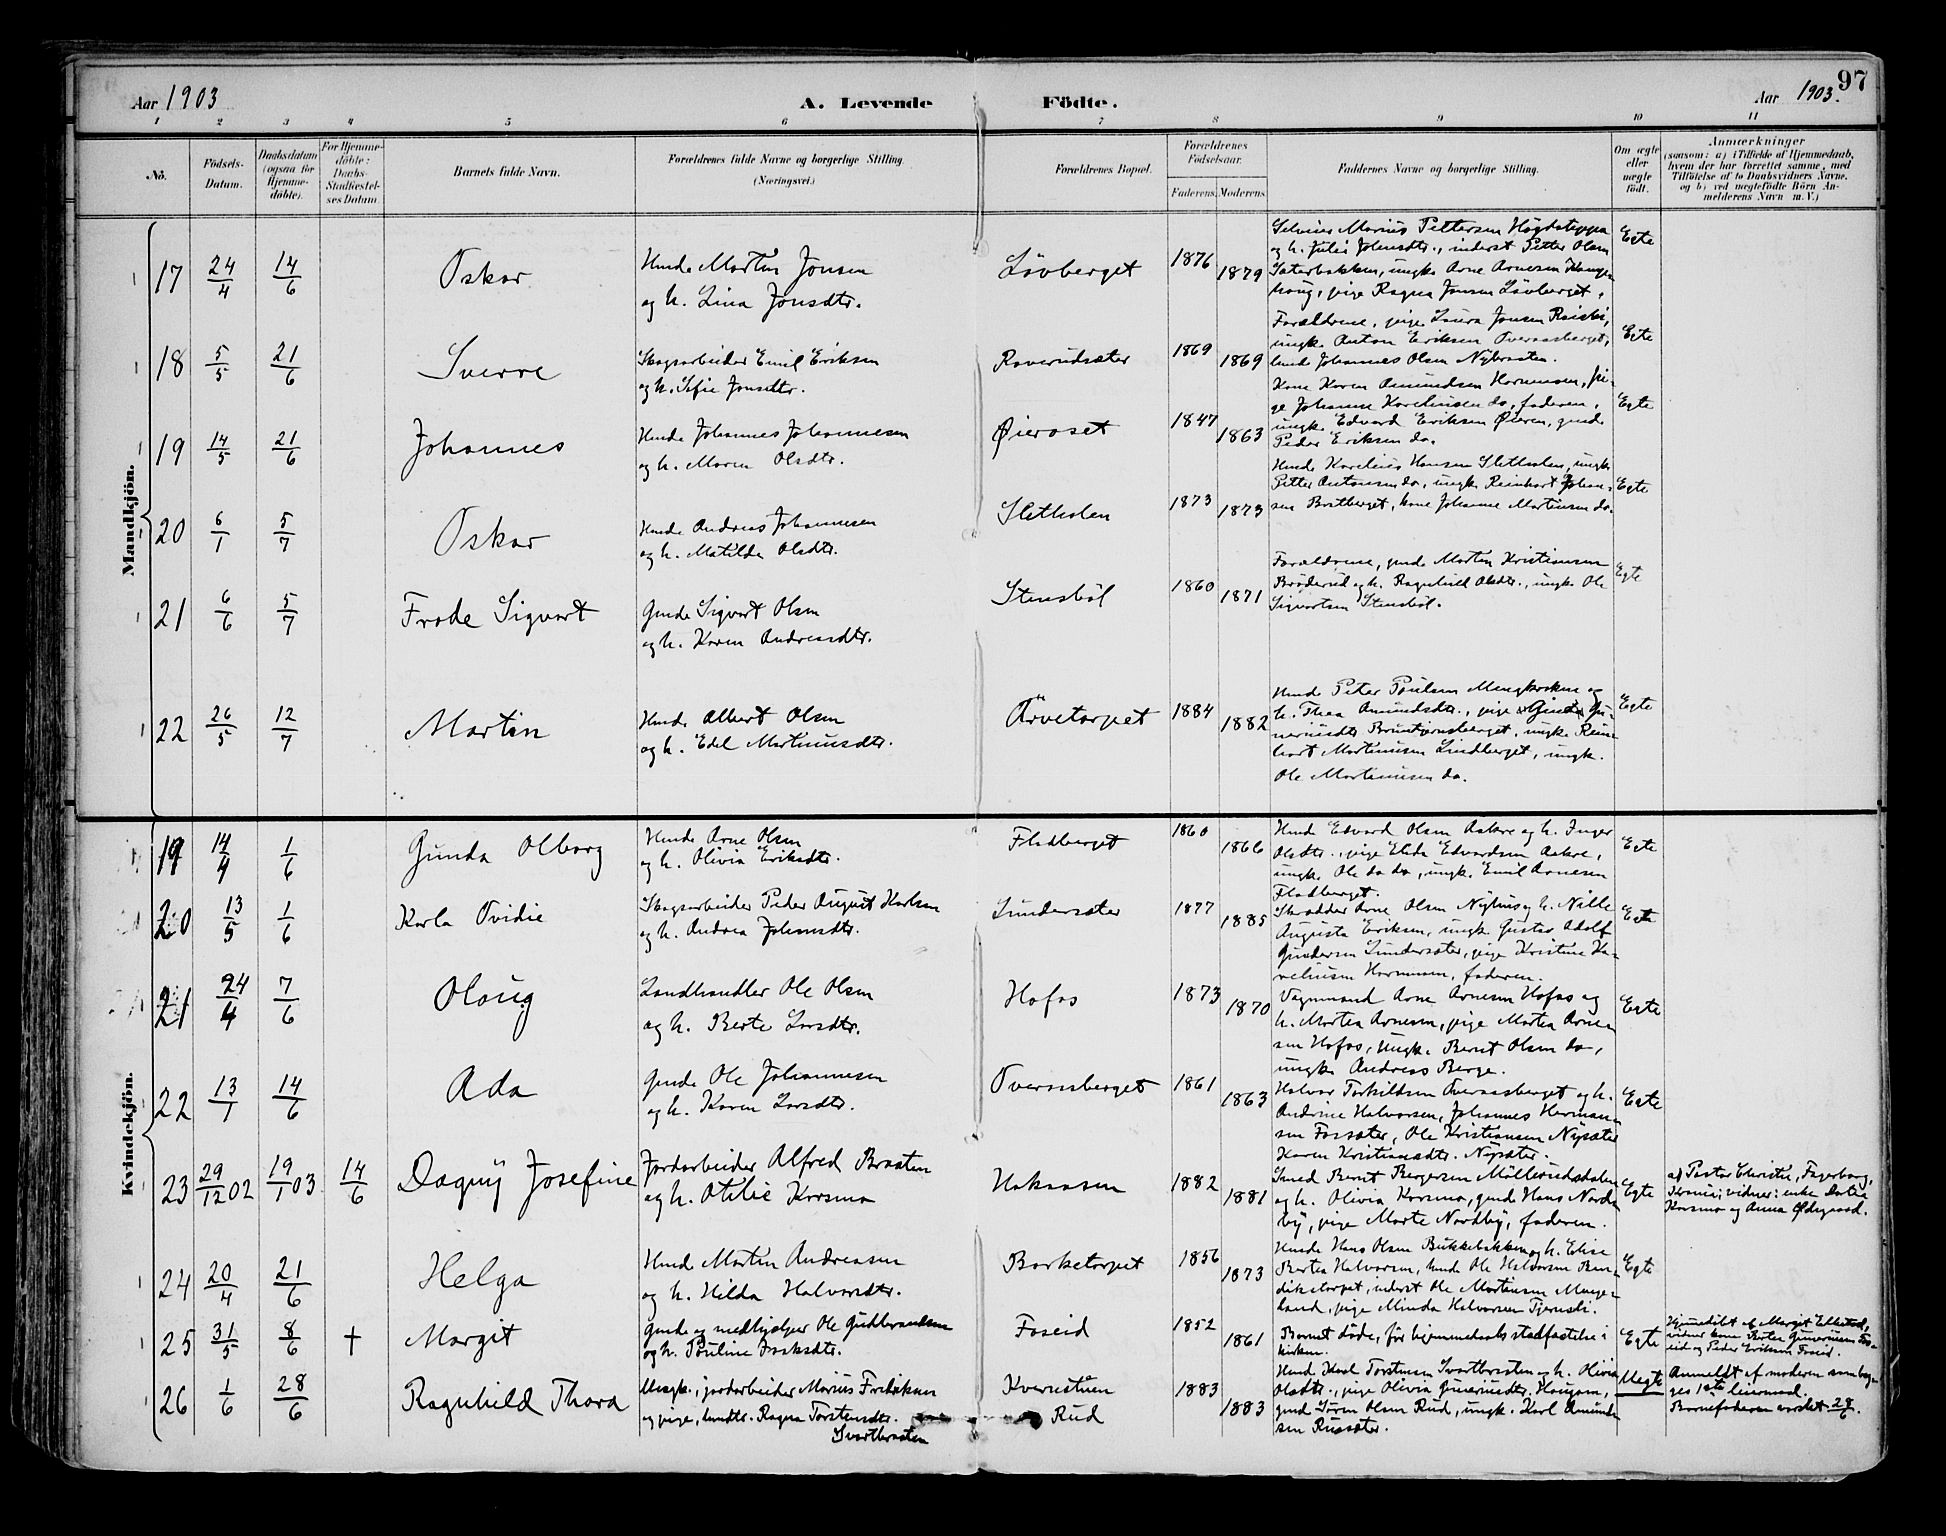 97
Aar 1903
A. Levende Födte.
Aar 1903.
1 2 3 4 5 6 7 8 9 10 11
No.
Födsels-Datum.
Daabsdatum (ogsaa for Hjemme-döbte).
For Hjemme-döbte: Daabs-Stadfæstel-ses Datum
Barnets fulde Navn.
Forældrenes fulde Navne og borgerlige Stilling. (Næringsvei.)
Forældrenes Bopæl.
Forældrenes Födselsaar.
Faderens. Moderens.
Faddernes Navne og borgerlige Stilling.
Om ægte eller uægte födt.
Anmærkninger
(saasom: a) i Tilfælde af Hjemmedaab,
hvem der har forrettet samme, med
Tilföielse af to Daabsvidners Navne.
og b) ved uægtefödte Börn An-
melderens Navn m. V.)
Mandkjön.
17 24/4 14/6 Oskar
Huude Martin Jonsen
og h. Lina Jonsdtr.
Lövberget 1876 1879
Pettersen Högdateppa
og h. Julie Johnsdtr., inderst Petter Olsen
Saterbakken, ungk. Arne Arnesen
haug, pige Ragna Jonsen Lövberget,
Egte
18 5/5 21/6 Sverre
Skogsarbeider Emil Eriksen
og h. Sofie Jonsdtr.
Raverudsæter 1869 1869
Forældrene, pige Laura Jonsen
ungk. Anton Eriksen Overaasberget,
huude Johannes Olsen Nybraaten.
Egte
19 14/5 21/6 Johannes
Huude Johannes Johannesen
og h. Maren Olsdtr.
Øieraset 1847 1863
Kone Karen Amundsen Harmusen, pi-
ge Johanne Kareliusen do, faderen,
ungk. Edvard Eriksen Øieren, gmd.
Peder Eriksen do.
Egte
20 6/1 5/7 Oskar
Huude Andreas Johannesen
og h. Matilda Olsdtr.
Sletholen 1873 1873
Huude Karelius Hansen Sletholen, ungk.
Petter Antonsen do, ungk. Reinhart Johan-
sen Bratberget, kone Johanne Martinsen do.
Egte
21 6/6 5/7 Frode Sigvart
Gmde Sigvart Olsen
og h. Karen Andreasdtr.
Stensböl 1860 1871
Forældrene, gmde Morten Kristiansen
Bröderud og h. Ragnhild Olsdtr., ungk. Ole
Sigvartsen Stensböl.
Egte
22 26/5 12/7 Martin
Huude Albert Olsen
og h. Edel Martinusdtr.
Ärvetorpet 1884 1882
Huude Peter Poulsen Mengkroken og
h. Thea Amundsdtr., pige Ginda Gu-
nerusdtr Bruntjernsberget, ungk. Rein-
hart Martinusen Lindberget, ungk.
Ole Martinusen do.
Egte
Kvindekjön.
19 14/4 1/6 Gunda Olborg
Huude Arne Olsen
og h. Olivia Eriksdtr.
Fladberget 1860 1866
Huud Edvard Olsen Askre og h. Inger
Olsdtr., pige Elida Edvardsen Askre,
ungk. Ole do do, ungk. Emil Arnesen
Fladberget.
Egte
20 13/5 1/6 Karla Ovidie
Skogsarbeider Peder August Karlsen
og h. Andrea Johansdtr.
Lundersæter 1877 1885
Skrædder Arne Olsen Nyhus og h. Nille
Augusta Eriksen, ungk. Gustav Adolf
Gundersen Lundersæter, pige Kristine Ka-
reliusen Harmusen, faderen.
Egte
21 24/4 7/6 Olaug
Landhandler Ole Olsen
og h. Berte Larsdtr.
Hofos 1873 1870
Vognmand Arne Arnesen Hofos og
h. Martea Arnesen, pige Martea Arne-
sen Hofos, ungk. Bernt Olsen do,
ungk. Andreas Berge.
Egte
22 13/1 14/6 Ada
Gmde Ole Johannesen
og h. Karen Larsdtr.
Overaasberget 1861 1863
Halvor Torkildsen Overaasberget og h.
Andrine Halvorsen, Johannes Herman-
sen Forsæter, Ole Kristiansen Nysæter
Karen Kristiansdtr. Nysæter.
Egte
23 29/12 02 19/1 03 14/6 Dagny Josefine
Jordarbeider Alfred Braaten
og h. Otilie Korsmo
Hokaasen 1882 1881
Smed Bernt Bergersen Möllerudsdalen
og h. Olivia Korsmo, gmde Hans Nord-
by, pige Marte Nordby, faderen.
Egte
af Pastor Christie, Fagerborg,
Kr.nia; vidner: enke
Korsmo og Anna Ødegaard.
24 20/4 21/6 Helga
Huud Martin Andreasen
og h. Hilda Halvorsdtr.
Borketorpet 1856 1873
Huude Hans Olsen Bukkebakken og h. Elise
Bertea Halvorsen, huude Ole Halvorsen Ben-
diketorpet, inderst Ole Martinsen Menge-
land, pige Minda Halvorsen Tjernsli.
Egte
25 31/5 8/6 † Margit
Gmde og medhjelper Ole Gudbrandsen
og h. Pauline Isaksdtr.
Foseid 1852 1861
Barnet döde, för hjemmedaabs stadfæstelse i
kirken.
Egte
Hjemmedöbt af Margit Ellestad,
vidner kone Berte Gunerusen Fo-
seid og Peder Eriksen Foseid.
26 1/6 28/6 Ragnhild Thora
Ungk., jordarbeider Marius Fredriksen
og pige, Ragna Torstensdtr.
Svartbraaten
Kvernstuen
Rud 1883 1883
Huud Karl Torstensen Svartbraaten og h. Olivia
Olsdtr., pige Olivia Gunerusdtr. Haugom,
gmd Sören Olsen Rud, ungk. Karl Amund-
sen Russæter.
Uegte
Anmeldt af moderen som begges
1ste leiermaal.
Barnefaderen varslet 28/6.